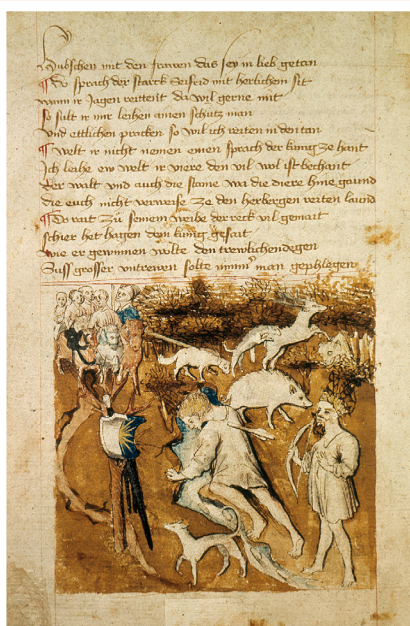 Hubschen mit den frawen das sey in lieb getan
Do sprach der starck Seifrid mit herlichem sit
wann ir Jagen reittent da wil gerne mit
so sult ir mir leihen ainen schutz man
Vnd ettlichen pracken so wil ich reiten in den tan
Welt ir nicht nemen einen sprach der kunig ze hant
Ich leihe ew welt ir viere den vil wol ist bechant
Der walt vnd auch die stame wa die diere hine gaund
Die euch nicht verweise ze den herbergen reiten laund
Do rait zu seinem weibe der reck vil gemait
schier het hagen dem kunig gesait
wie er gewinnen wolte den trewlichen degen
Suss grosser vntrewen solte nimmer man gephlegen